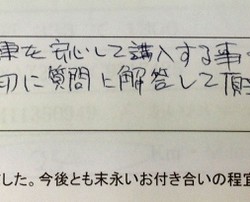 車を安心して講入する事
切に質問に解答して頂
した。今後とも末永いお付き合いの程宜